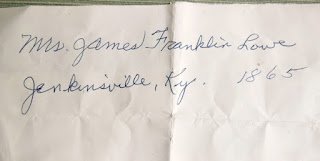 Mrs. James Franklin Lowe
Jenkinsville, Ky. 1865